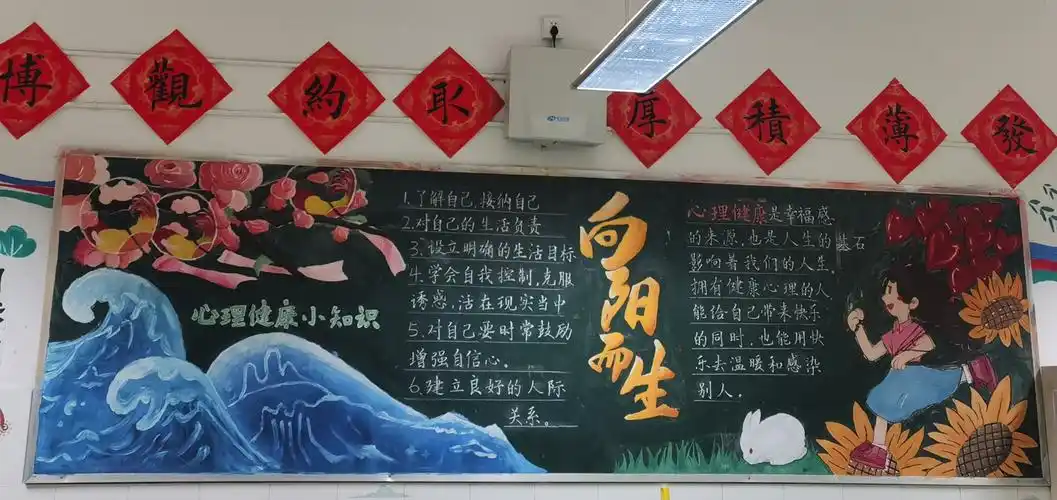 博觀約取厚積薄發
心理健康小知识
1.了解自己,接纳自己
2.对自己的生活负责
3.设立明确的生活目标
4.学会自我控制,克服
诱惑,活在现实当中
5.对自己要时常鼓励
增强自信心。
6.建立良好的人际
关系。
向阳而生
心理健康是幸福感
的来源,也是人生的基石
影响着我们的人生。
拥有健康心理的人
能给自己带来快乐
的同时,也能用快
乐去温暖和感染
别人。